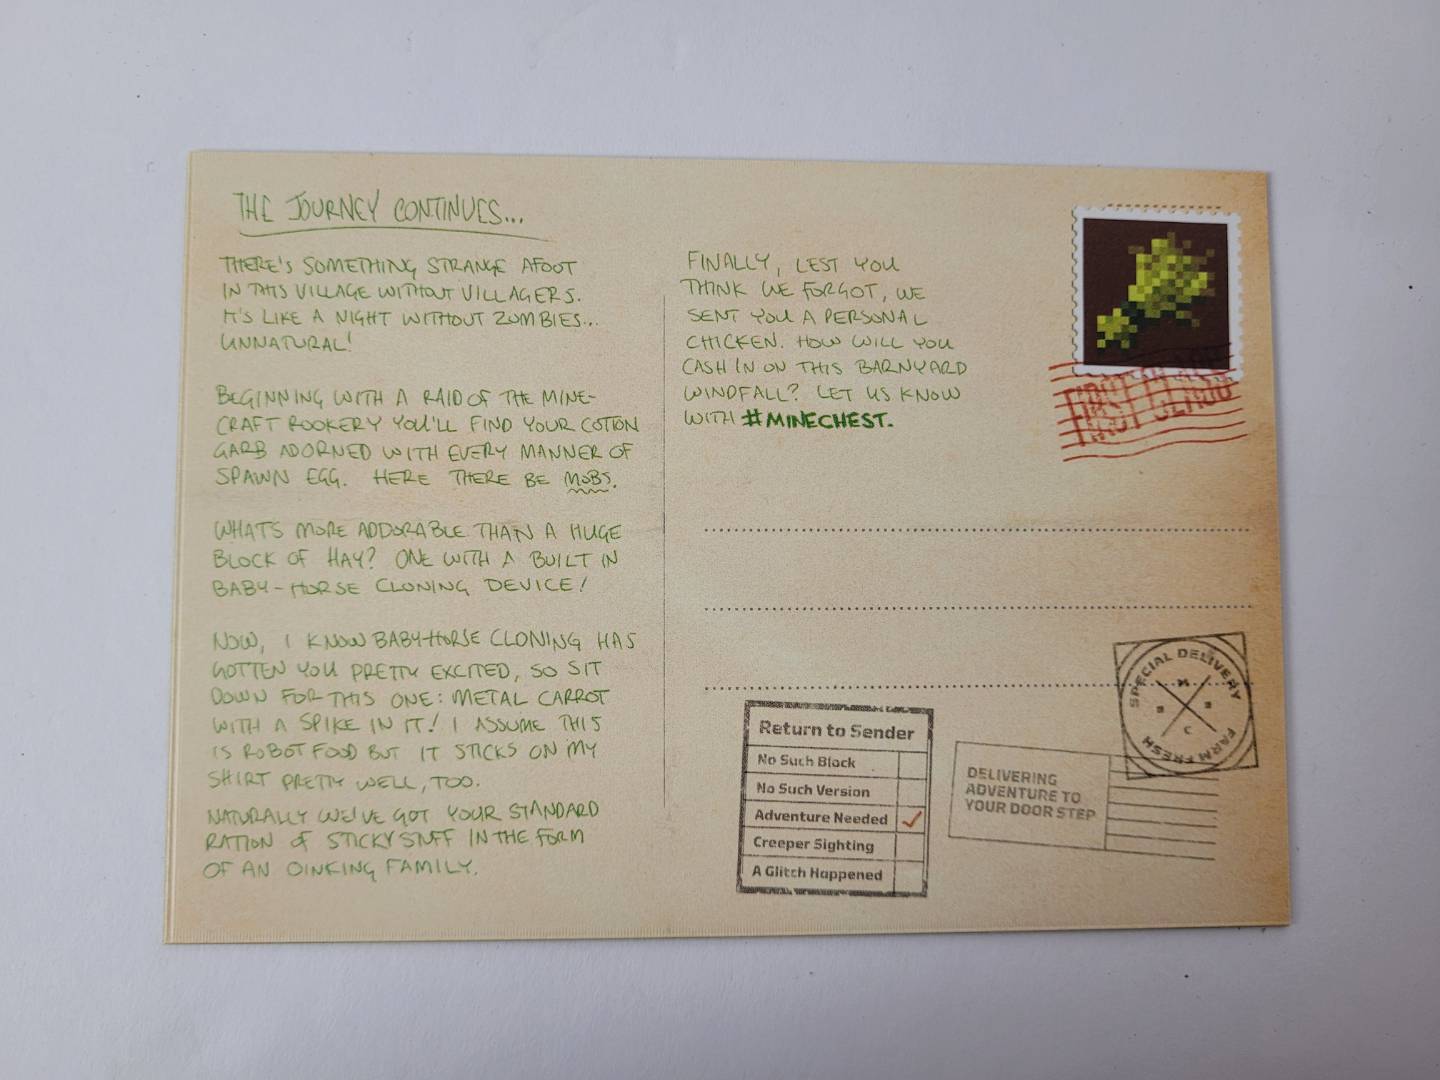 THE JOURNEY CONTINUES...
THERE'S SOMETHING STRANGE AFOOT
IN THIS VILLAGE WITHOUT VILLAGERS.
IT'S LIKE A NIGHT WITHOUT ZOMBIES...
UNNATURAL!
BEGINNING WITH A RAID OF THE MINE-
CRAFT ROOKERY YOU'LL FIND YOUR COTTON
GARB ADORNED WITH EVERY MANNER OF
SPAWN EGG. HERE THERE BE MOBS.
WHAT'S MORE ADDORABLE THAN A HUGE
BLOCK OF HAY? ONE WITH A BUILT IN
BABY-HORSE CLONING DEVICE!
NOW, I KNOW BABY-HORSE CLONING HAS
GOTTEN YOU PRETTY EXCITED, SO SIT
DOWN FOR THIS ONE: METAL CARROT
WITH A SPIKE IN IT! I ASSUME THIS
IS ROBOT FOOD BUT IT STICKS ON MY
SHIRT PRETTY WELL, TOO.
NATURALLY WE'VE GOT YOUR STANDARD
RATION of STICKY STUFF IN THE FORM
OF AN OINKING FAMILY.
FINALLY, LEST YOU
THINK WE FORGOT, WE
SENT YOU A PERSONAL
CHICKEN. HOW WILL YOU
CASH IN ON THIS BARNYARD
WINDFALL? LET US KNOW
WITH #MINECHEST.
FIRST CLASS
Return to Sender
No Such Block
No Such Version
Adventure Needed
Creeper Sighting
A Glitch Happened
DELIVERING
ADVENTURE TO
YOUR DOOR STEP
SPECIAL DELIVERY
FARM FRESH